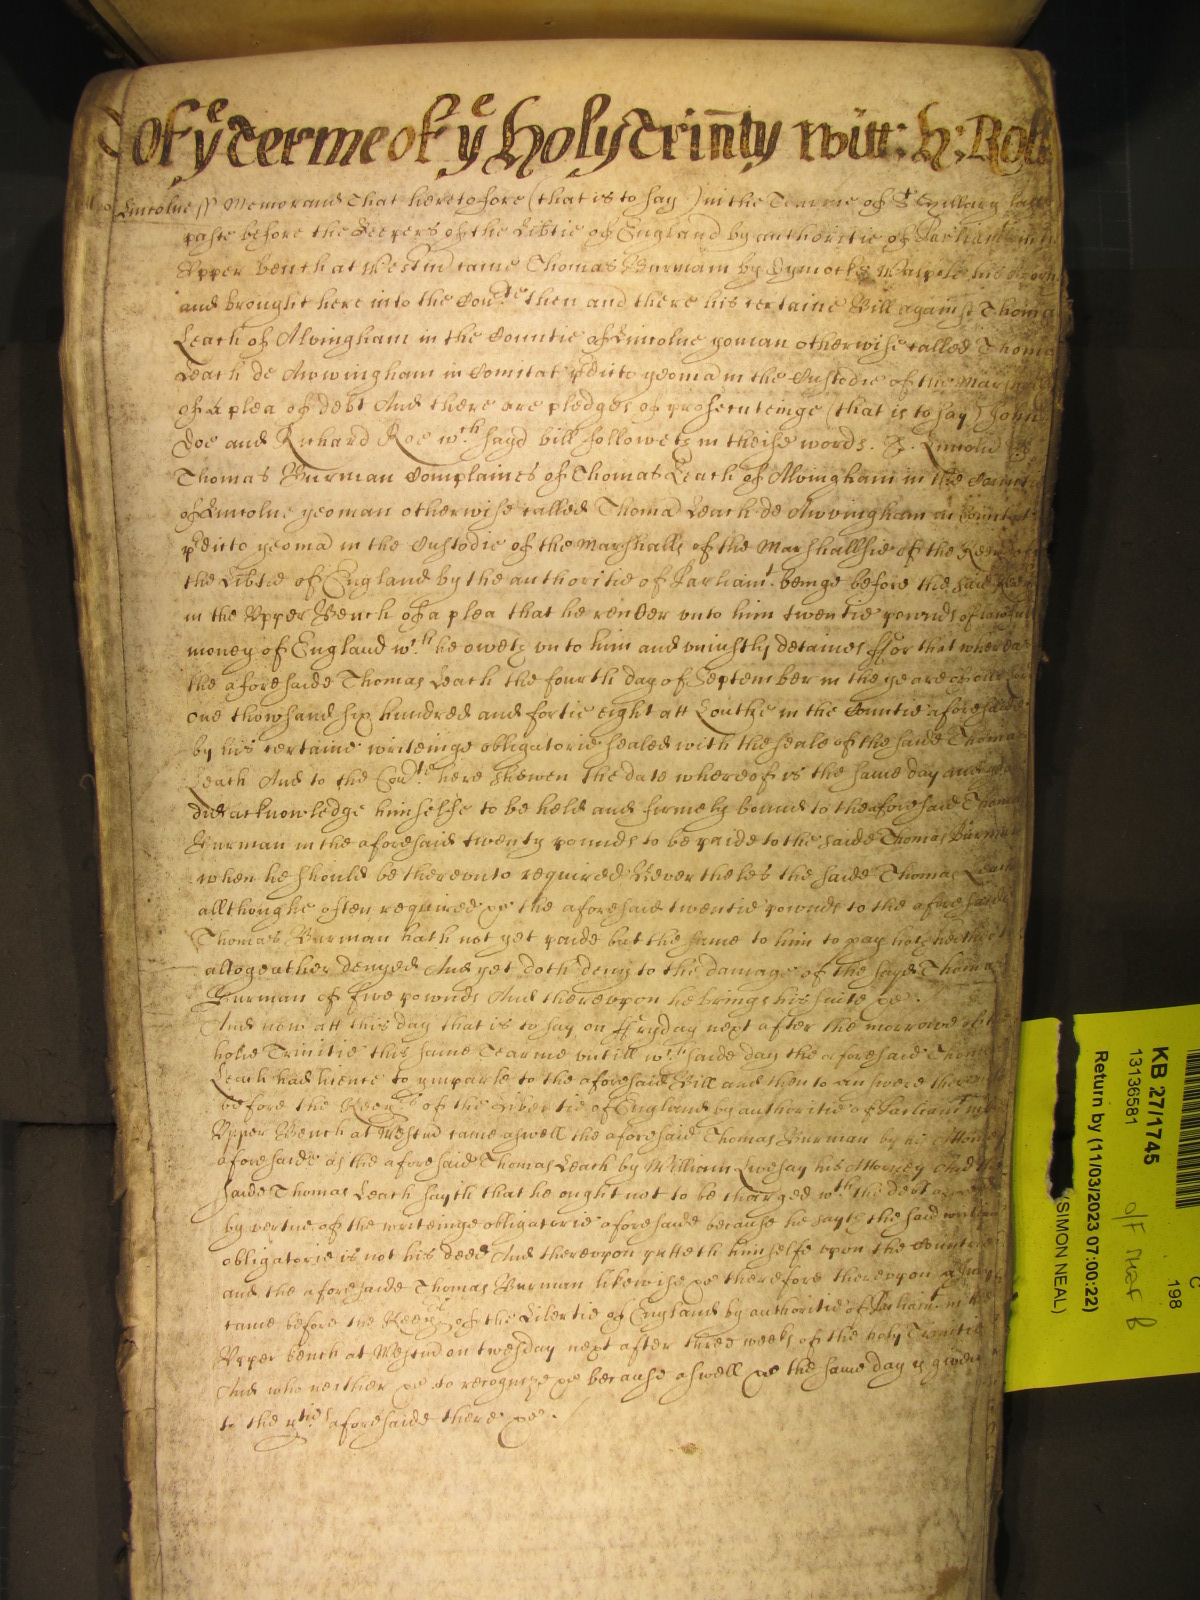 Of yᵉ terme of yᵉ Holy Trinity witt: h: Roll
Lincolne ss Memorand That heretofore (that is to say) in the Tearme of Sᵗ Hyllary last
paste before the Keepers of the Libtie of England by authoritie of Parliamᵗ in the
Upper bench at Westmʳ came Thomas Burman by Dymocke Walpole his Attorn
and brought here into the Courte then and there his certaine Bill against Thomas
Leach of Alvingham in the Countie of Lincolne yoman otherwise called Thomas
Leach de Awvingham in Comitat pᵈicto yeomā in the Custodie of the Marshall
of a plea of debt And there are pledges of prosecuteinge (that is to say) John
Doe and Richard Roe wᶜʰ sayd bill followeth in theise words. ss. Lincolne ss
Thomas Burman Complaines of Thomas Leach of Alvingham in the Countie
of Lincolne yeoman otherwise called Thomas Leach de Awvingham in Comitat
pᵈicto yeomā in the Custodie of the Marshalls of the Marshallsie of the Keepers of
the Libtie of England by the authoritie of Parliamᵗ beinge before the said Keep
in the Upper Bench of a plea that he render unto him twentie pownds of lawfull
money of England wᶜʰ he oweth unto him and uniustly detaines ffor that whereas
the aforesaide Thomas Leach the fourth day of September in the yeare of our Lord
one thowsand six hundred and fortie eight att Louthe in the Countie aforesaide
by his certaine writeinge obligatorie sealed with the seale of the saide Thomas
Leach And to the Courte here shewen the date whereof is the same day and
did acknowledge himselfe to be held and firmely bound to the aforesaid Thomas
Burman in the aforesaid twenty pounds to be paide to the saide Thomas Burman
when he should be thereunto required Neverthelės the saide Thomas Leach
allthoughe often required &c the aforesaid twentie pownds to the aforesaide
Thomas Burman hath not yet paide but the same to him to pay hath hitherto
altogeather denyed And yet doth deny to the damage of the sayd Thomas
Burman of five pownds And thereupon he brings his suite &c.
And now att this day that is to say on ffryday next after the morrowe of the
holie Trinitie this same Tearme untill wᶜʰ saide day the aforesaid Thomas
Leach had licence to ymparle to the aforesaid Bill and then to answere thereunto
before the Keepʳˢ of the Libertie of England by authoritie of Parliamᵗ in the
Upper Bench at Westmʳ came aswell the aforesaid Thomas Burman by his Attorney
aforesaide as the aforesaid Thomas Leach by William Livesay his Attorney And the
saide Thomas Leach sayth that he ought not to be charged wᵗʰ the debt aforesaid
by vertue of the writeinge obligatorie aforesaide because he sayth the said writeing
obligatorie is not his deed And thereupon putteth himselfe upon the Countrie
and the aforesaide Thomas Burman likewise &c therefore thereupon a Jury
came before the Keepʳˢ of the Libertie of England by authoritie of Parliamᵗ in the
Upper bench at Westmʳ on twesday next after three weeks of the holy Trinitie
And who neither &c to recognize &c because aswell &c the same day is given
to the pties aforesaide there &c.
KB 27/1745
13136581
Return by (11/03/2023 07:00:22)
(SIMON NEAL)
198
C